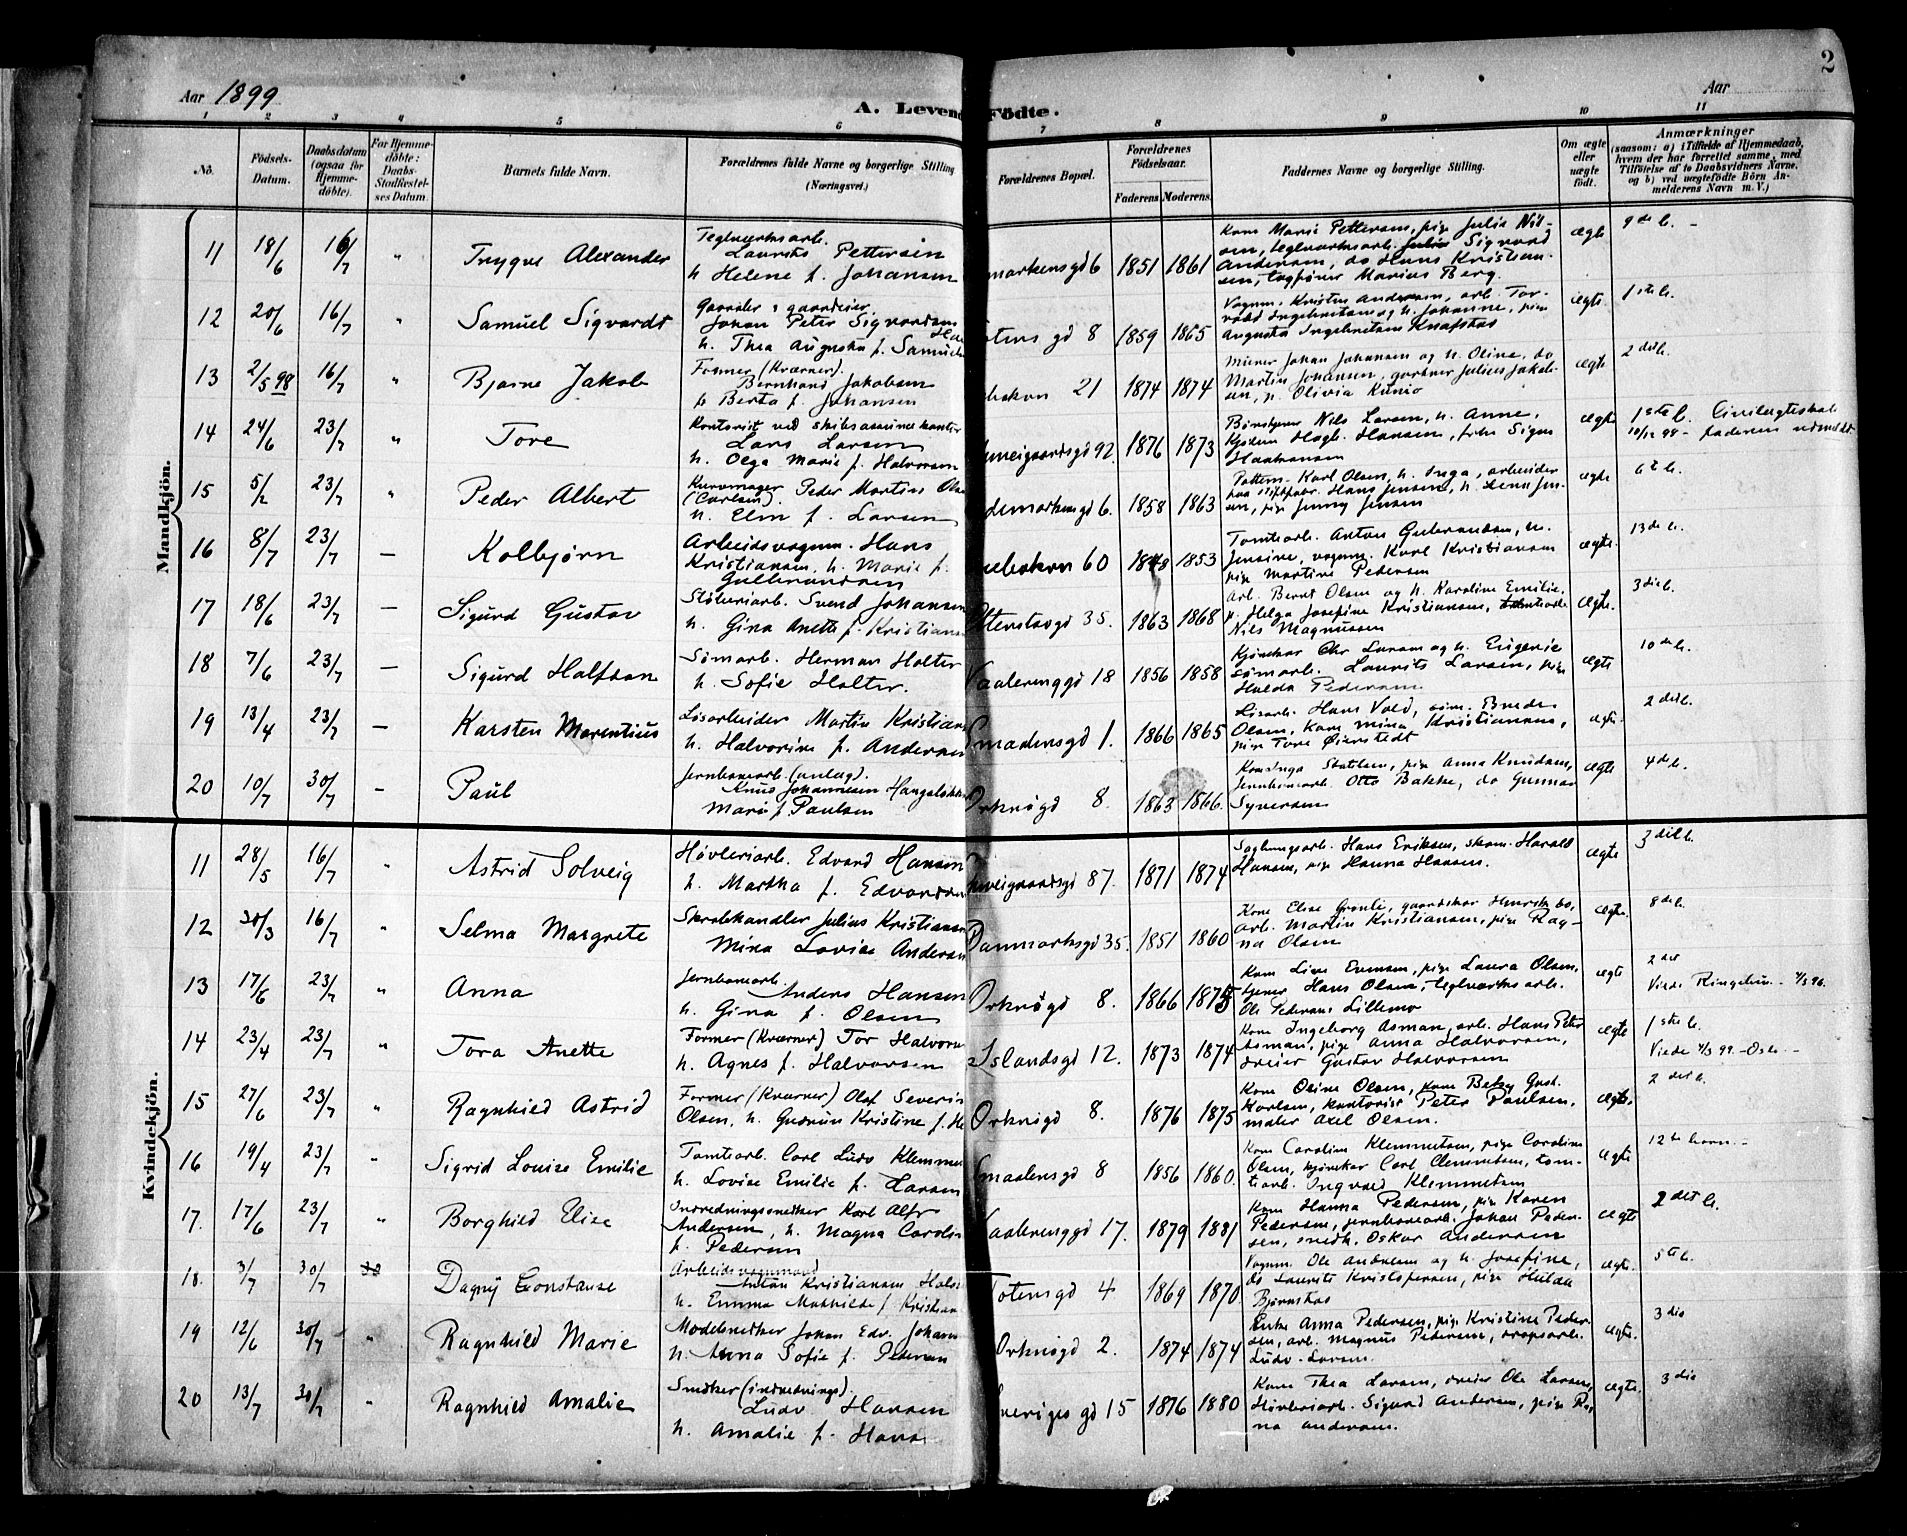 2
Aar 1899
Aar
A. Levend Födte.
1 2 3 4 5 6 7 8 9 10 11
No. Födsels-Datum. Daabsdatum (ogsaa for Hjemmedöbte). For Hjemmedöbte: Daabs-Stadfæstelses Datum. Barnets fulde Navn. Forældrenes fulde Navne og borgerlige Stilling (Næringsvei.) Forældrenes Bopæl. Forældrenes Födselsaar. Faderens Moderens. Faddernes Navne og borgerlige Stilling. Om ægte eller uægte født. Anmærkninger (saasom: a) i Tilfælde af Hjemmedaab, hvem der har forrettet samme, med Tilföielse af to Daabsvidners Navne, og b) ved uægtefödte Börn Anmelderens Navn m. V.)
Mandkjön.
11 18/6 16/7 " Trygve Alexander Teglværksarb. Laurits Pettersen h. Helene f. Johansen markensgd 6 1851 1861 Kone Marie Pettersen, pige Julie Nilsen, teglværksarb. Sigvard Andersen, do Hans Kristiansen, togfører Marius Berg. ægte 9de b. -
12 20/6 16/7 " Samuel Sigvardt Gaardeier Johan Peter Sigvardsen h. Thea Augusta f. Samuels tens gd 8 1859 1865 Vognm. Kristen Andersen, arb. Torvald Ingebretsen og h. Johanne, pige Augusta Ingebretsen Knafstad ægte. 1ste b.
13 2/5 98 16/7 " Bjarne Jakob Former (Kværner). Bernhard Jakobsen h Berta f. Johansen ebakken 21 1874 1874 Murer Johan Johansen og h. Oline, do Martin Johansen, gartner Julius Jakobsen, h. Olivia ægte 2det b.
14 24/6 23/7 " Tore Kontorist ved skibsassurancekontor Lars Larsen h. Olga Marie f. Halvorsen weigaardsgd 92. 1876 1873 Nils Larsen, h. Anne, Hagb. Hansen, frk. Signe Haakensen ægte 1ste b. Civilægteskab 10/12 98 - faderen udmeldt
15 5/2 23/7 " Peder Albert Kurvmager Peder Martin Ols (Carlsen). h. Elen f. Larsen demarkensgd 6. 1858 1863 Pottem. Karl Olsen, h. Inga, arbeider Hans Jensen, h. Lena Jensen, pige Jenny Jensen ægte 6te b.
16 8/7 23/7 - Kolbjørn Arbeidsvognm. Hans Kristiansen, h. Marie f. Gulbrandsen ebakken 60 1848 1853 Tomtearb. Anton Gulbrandsen, h. Jensine, vognm. Karl Kristiansen pige Martine Pedersen ægte. 13de b.
17 18/6 23/7 - Sigurd Gustav Støberiarb. Svend Johansen h. Gina Anette f. Kristians Ottenstadgd 35. 1863 1868 arb. Bernt Olsen og h. Karoline Emilie, p. Helga Josefine Kristiansen, tomtearb. Nils Magnussen ægte. 3die b.
18 7/6 23/7 - Sigurd Halfdan Sømarb. Herman Holter h. Sofie Holter. Vaalerenggd 18 1856 1858 Kjørekar Chr Larsen og h. Eugenie sømarb. Laurits Larsen, pige Hulda Pedersen ægte 10de b.
19 13/4 23/7 - Karsten Marentius Løsarbeider Martin Kristians h. Halvorine f. Anderse Smaalensgd 1. 1866 1865 Løsarb. Hans Vold, Olsen, kone Mina Kristiansen, pige Tore Ørerstedt ægte. 2det b.
20 10/7 30/7 - Paul Jernbanearb. (anlæg). Knud Johannesen Marie f. Paulsen Orknøgd 8. 1863 1866. Kone Inga pige Anna Knudsen, Jernbanearb. Otto Bakke, do Gunnar Syversen ægte 4de b.
Kvindekjön.
11 28/5 16/7 " Astrid Solveig Høvleriarb. Edvard Hansen h. Martha f. Edvardsen weigaardsgd 87. 1871 1874 Sagbrugsarb. Hans Eriksen, skom. Harald Hansen, pige Hanna Hansen. ægte 3die b.
12 30/3 16/7 " Selma Margrete Skrabhandler Julius Kristiansen Mina Lovise Andersen Danmarksgd 35. 1851 1860 Kone Elise Grønli, gaardskar Henrik do, arb. Martin Kristiansen, pige Ragna Olsen ægte. 8de b.
13 17/6 23/7 " Anna Jernbanearb. Anders Hansen h. Gina f. Olsen Orknøgd 8. 1866 1875 Kone Lise Evensen, pige Laura Olsen, tjener Hans Olsen, teglværksarb. Ole Pedersen Lillemo ægte 2det Viede Ringebu 4/3 96.
14 23/4 23/7 " Tora Anette Former (Kværner) Tor Halvors h. Agnes f. Halvorsen Islandsgd 12. 1873 1874 Kone Ingeborg Asman, arb. Hans Peter Asman, pige Anna Halvorsen, dreier Gustav Halvorsen ægte 1ste b. Viede 4/3 99. - Oslo. -
15 27/6 23/7 " Ragnhild Astrid Former (Kværner) Olaf Severin Olsen, h. Gudrun Kristine f. H Orknøgd 8. 1876 1875 Kone Oline Olsen, kone Betzy Gust. Karlsen, kontorist Peter Paulsen, maler Axel Olsen. ægte. 2det b.
16 19/4 23/7 " Sigrid Louise Emilie Tomtearb. Carl Ludv Klemme h. Lovise Emilie f. Larsen Smaalensgd 8 1856 1860. Kone Caroline Klemmetsen, pige Caroline Olsen, kjørekar Carl Clemmetsen, tomtearb. Ingvald Klemmetsen ægte 12te barn. -
17. 17/6 23/7 " Borghild Elise Indredningssnedker Karl Alfr Andersen, h. Magna Caroline f. Pedersen Vaalerenggd 17. 1879 1881 Kone Hanna Pedersen, pige Karen Pedersen, jernbanearb. Johan Pedersen, snedk. Oskar Andersen ægte 2det b.
18. 3/7 30/7 Dagny Constanse Arbeidsvognmand Anton Kristiansen Hals h. Emma Mathilde f. Kristian Totensgd 4 1869 1870 Vognm. Ole Andersen og h. Josefine, do Laurits Kristofersen, pige Hulda Bjørnstad ægte. 5te b.
19 12/6 30/7 " Ragnhild Marie Modelsnedker Johan Edv. Johans h. Anna Sofie f. Pedersen Orknøgd 2. 1874 1874 Enke Anna Pedersen, pige Kristine Pedersen, arb. Magnus Pedersen, Ludv. Larsen. ægte. 3die
20 13/7 30/7 " Ragnhild Amalie Snedker (indrednings). Ludv Hansen h. Amalie f. Hans veriges gd 15 1876 1880 Kone Thea Larsen, dreier Ole Larsen, Høvleriarb. Sigurd Andersen, pige Ragna Andersen. ægte. 3die